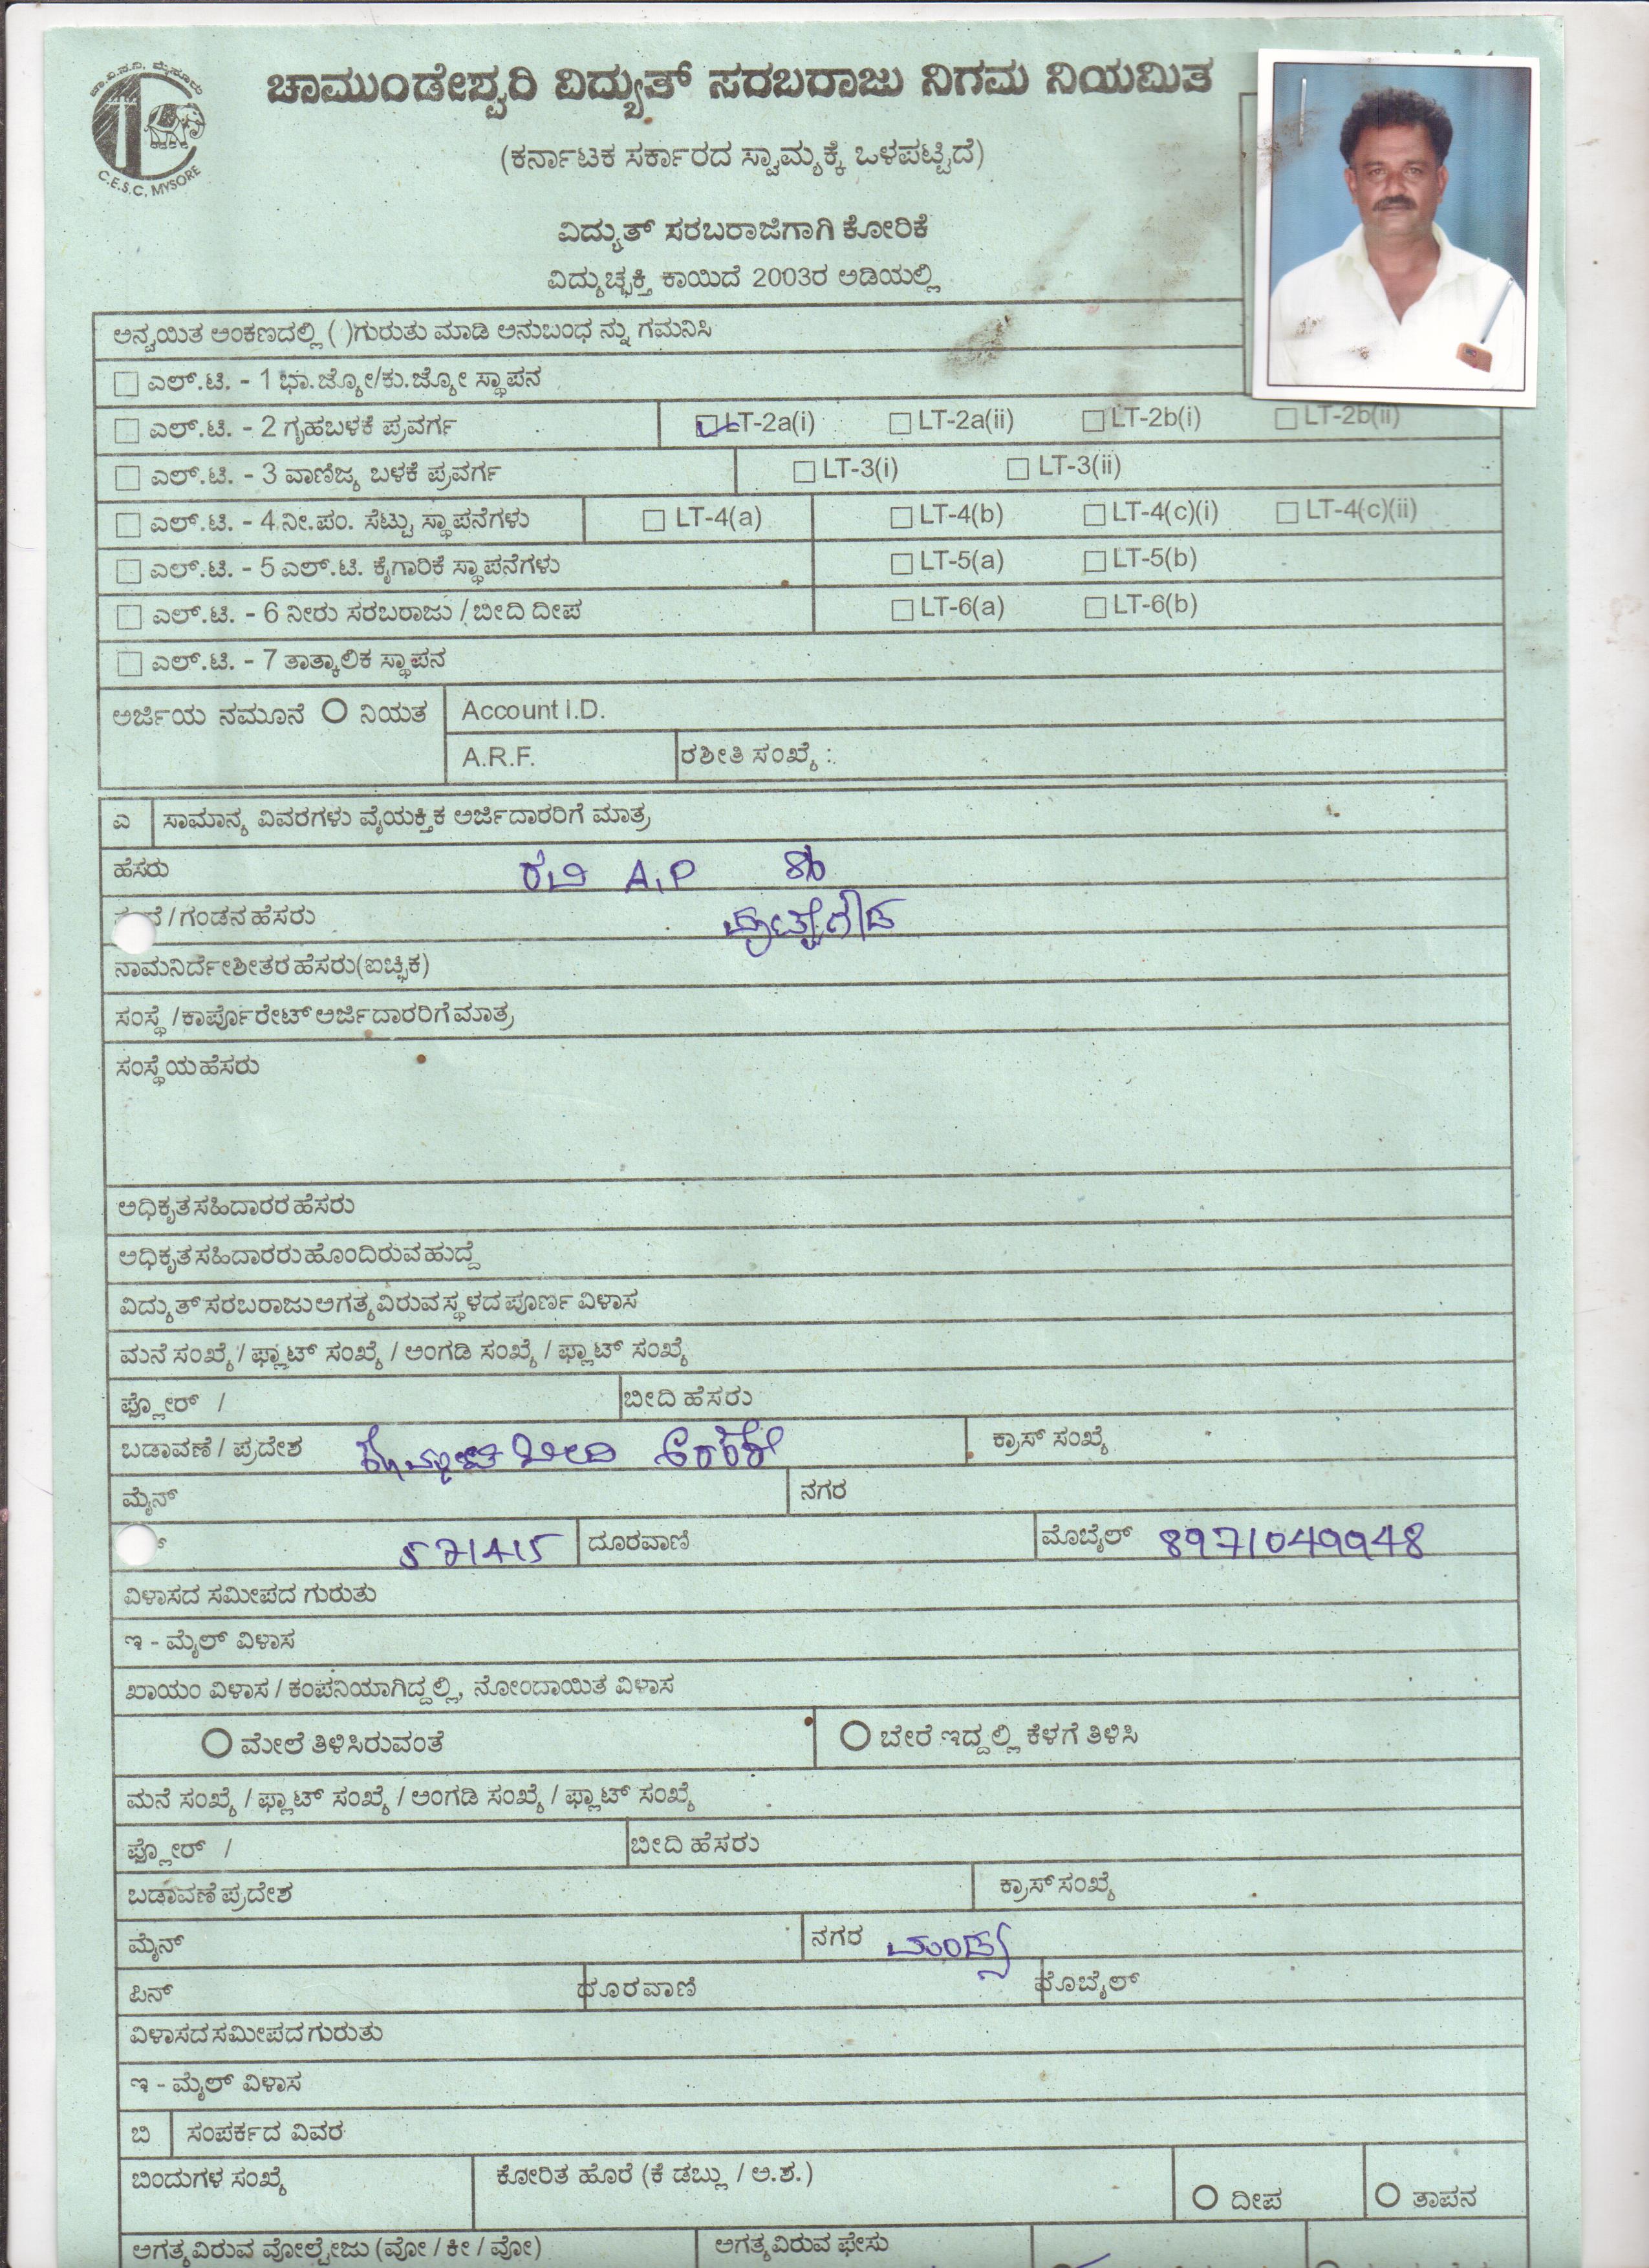 ಚಾ.ವಿ.ಸ.ನಿ. ಮೈಸೂರು
C.E.S.C, MYSORE
ಚಾಮುಂಡೇಶ್ವರಿ ವಿದ್ಯುತ್ ಸರಬರಾಜು ನಿಗಮ ನಿಯಮಿತ
(ಕರ್ನಾಟಕ ಸರ್ಕಾರದ ಸ್ವಾಮ್ಯಕ್ಕೆ ಒಳಪಟ್ಟಿದೆ)
ವಿದ್ಯುತ್ ಸರಬರಾಜಿಗಾಗಿ ಕೋರಿಕೆ
ವಿದ್ಯುಚ್ಛಕ್ತಿ ಕಾಯಿದೆ 2003ರ ಅಡಿಯಲ್ಲಿ
ಅನ್ವಯಿತ ಅಂಕಣದಲ್ಲಿ ( )ಗುರುತು ಮಾಡಿ ಅನುಬಂಧ ನ್ನು ಗಮನಿಸಿ
ಎಲ್.ಟಿ. - 1 ಭಾ.ಜ್ಯೋ/ಕು.ಜ್ಯೋ ಸ್ಥಾಪನ
ಎಲ್.ಟಿ. - 2 ಗೃಹಬಳಕೆ ಪ್ರವರ್ಗ LT-2a(i) LT-2a(ii) LT-2b(i) LT-2b(ii)
ಎಲ್.ಟಿ. - 3 ವಾಣಿಜ್ಯ ಬಳಕೆ ಪ್ರವರ್ಗ LT-3(i) LT-3(ii)
ಎಲ್.ಟಿ. - 4 ನೀ.ಪಂ. ಸೆಟ್ಟು ಸ್ಥಾಪನೆಗಳು LT-4(a) LT-4(b) LT-4(c)(i) LT-4(c)(ii)
ಎಲ್.ಟಿ. - 5 ಎಲ್.ಟಿ. ಕೈಗಾರಿಕೆ ಸ್ಥಾಪನೆಗಳು LT-5(a) LT-5(b)
ಎಲ್.ಟಿ. - 6 ನೀರು ಸರಬರಾಜು / ಬೀದಿ ದೀಪ LT-6(a) LT-6(b)
ಎಲ್.ಟಿ. - 7 ತಾತ್ಕಾಲಿಕ ಸ್ಥಾಪನ
ಅರ್ಜಿಯ ನಮೂನೆ ನಿಯತ Account I.D.
A.R.F. ರಶೀತಿ ಸಂಖ್ಯೆ :
ಎ ಸಾಮಾನ್ಯ ವಿವರಗಳು ವೈಯಕ್ತಿಕ ಅರ್ಜಿದಾರರಿಗೆ ಮಾತ್ರ
ಹೆಸರು ರವಿ A.P S/o
/ ಗಂಡನ ಹೆಸರು ಪುಟ್ಟೇಗೌಡ
ನಾಮನಿರ್ದೇಶೀತರ ಹೆಸರು(ಐಚ್ಛಿಕ)
ಸಂಸ್ಥೆ /ಕಾರ್ಪೊರೇಟ್ ಅರ್ಜಿದಾರರಿಗೆ ಮಾತ್ರ
ಸಂಸ್ಥೆಯ ಹೆಸರು
ಅಧಿಕೃತ ಸಹಿದಾರರ ಹೆಸರು
ಅಧಿಕೃತ ಸಹಿದಾರರು ಹೊಂದಿರುವ ಹುದ್ದೆ
ವಿದ್ಯುತ್ ಸರಬರಾಜು ಅಗತ್ಯವಿರುವ ಸ್ಥಳದ ಪೂರ್ಣ ವಿಳಾಸ
ಮನೆ ಸಂಖ್ಯೆ / ಫ್ಲಾಟ್ ಸಂಖ್ಯೆ / ಅಂಗಡಿ ಸಂಖ್ಯೆ / ಫ್ಲಾಟ್ ಸಂಖ್ಯೆ
ಫ್ಲೋರ್ / ಬೀದಿ ಹೆಸರು
ಬಡಾವಣೆ / ಪ್ರದೇಶ ಬೀದಿ ಅರಕೆರೆ ಕ್ರಾಸ್ ಸಂಖ್ಯೆ
ಮೈನ್ ನಗರ
571415 ದೂರವಾಣಿ ಮೊಬೈಲ್ 8971049948
ವಿಳಾಸದ ಸಮೀಪದ ಗುರುತು
ಇ - ಮೈಲ್ ವಿಳಾಸ
ಖಾಯಂ ವಿಳಾಸ / ಕಂಪನಿಯಾಗಿದ್ದಲ್ಲಿ, ನೋಂದಾಯಿತ ವಿಳಾಸ
ಮೇಲೆ ತಿಳಿಸಿರುವಂತೆ ಬೇರೆ ಇದ್ದಲ್ಲಿ ಕೆಳಗೆ ತಿಳಿಸಿ
ಮನೆ ಸಂಖ್ಯೆ / ಫ್ಲಾಟ್ ಸಂಖ್ಯೆ / ಅಂಗಡಿ ಸಂಖ್ಯೆ / ಫ್ಲಾಟ್ ಸಂಖ್ಯೆ
ಫ್ಲೋರ್ / ಬೀದಿ ಹೆಸರು
ಬಡಾವಣೆ ಪ್ರದೇಶ ಕ್ರಾಸ್ ಸಂಖ್ಯೆ
ಮೈನ್ ನಗರ ಮಂಡ್ಯ
ಪಿನ್ ದೂರವಾಣಿ ಮೊಬೈಲ್
ವಿಳಾಸದ ಸಮೀಪದ ಗುರುತು
ಇ - ಮೈಲ್ ವಿಳಾಸ
ಬಿ ಸಂಪರ್ಕದ ವಿವರ
ಬಿಂದುಗಳ ಸಂಖ್ಯೆ ಕೋರಿತ ಹೊರೆ (ಕೆ ಡಬ್ಲು / ಅ.ಶ.) ದೀಪ ತಾಪನ
ಅಗತ್ಯವಿರುವ ವೋಲ್ಟೇಜು (ವೋ / ಕೀ / ವೋ) ಅಗತ್ಯವಿರುವ ಫೇಸು